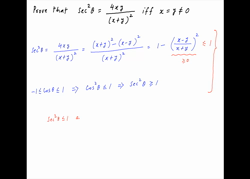 Prove that sec²θ = 4xy/(x+y)² iff x = y ≠ 0
sec²θ = 4xy/(x+y)² = ((x+y)² - (x-y)²)/(x+y)² = 1 - ((x-y)/(x+y))² ≤ 1
≥0
-1 ≤ cosθ ≤ 1 ⇒ cos²θ ≤ 1 ⇒ sec²θ ≥ 1
sec²θ ≤ 1